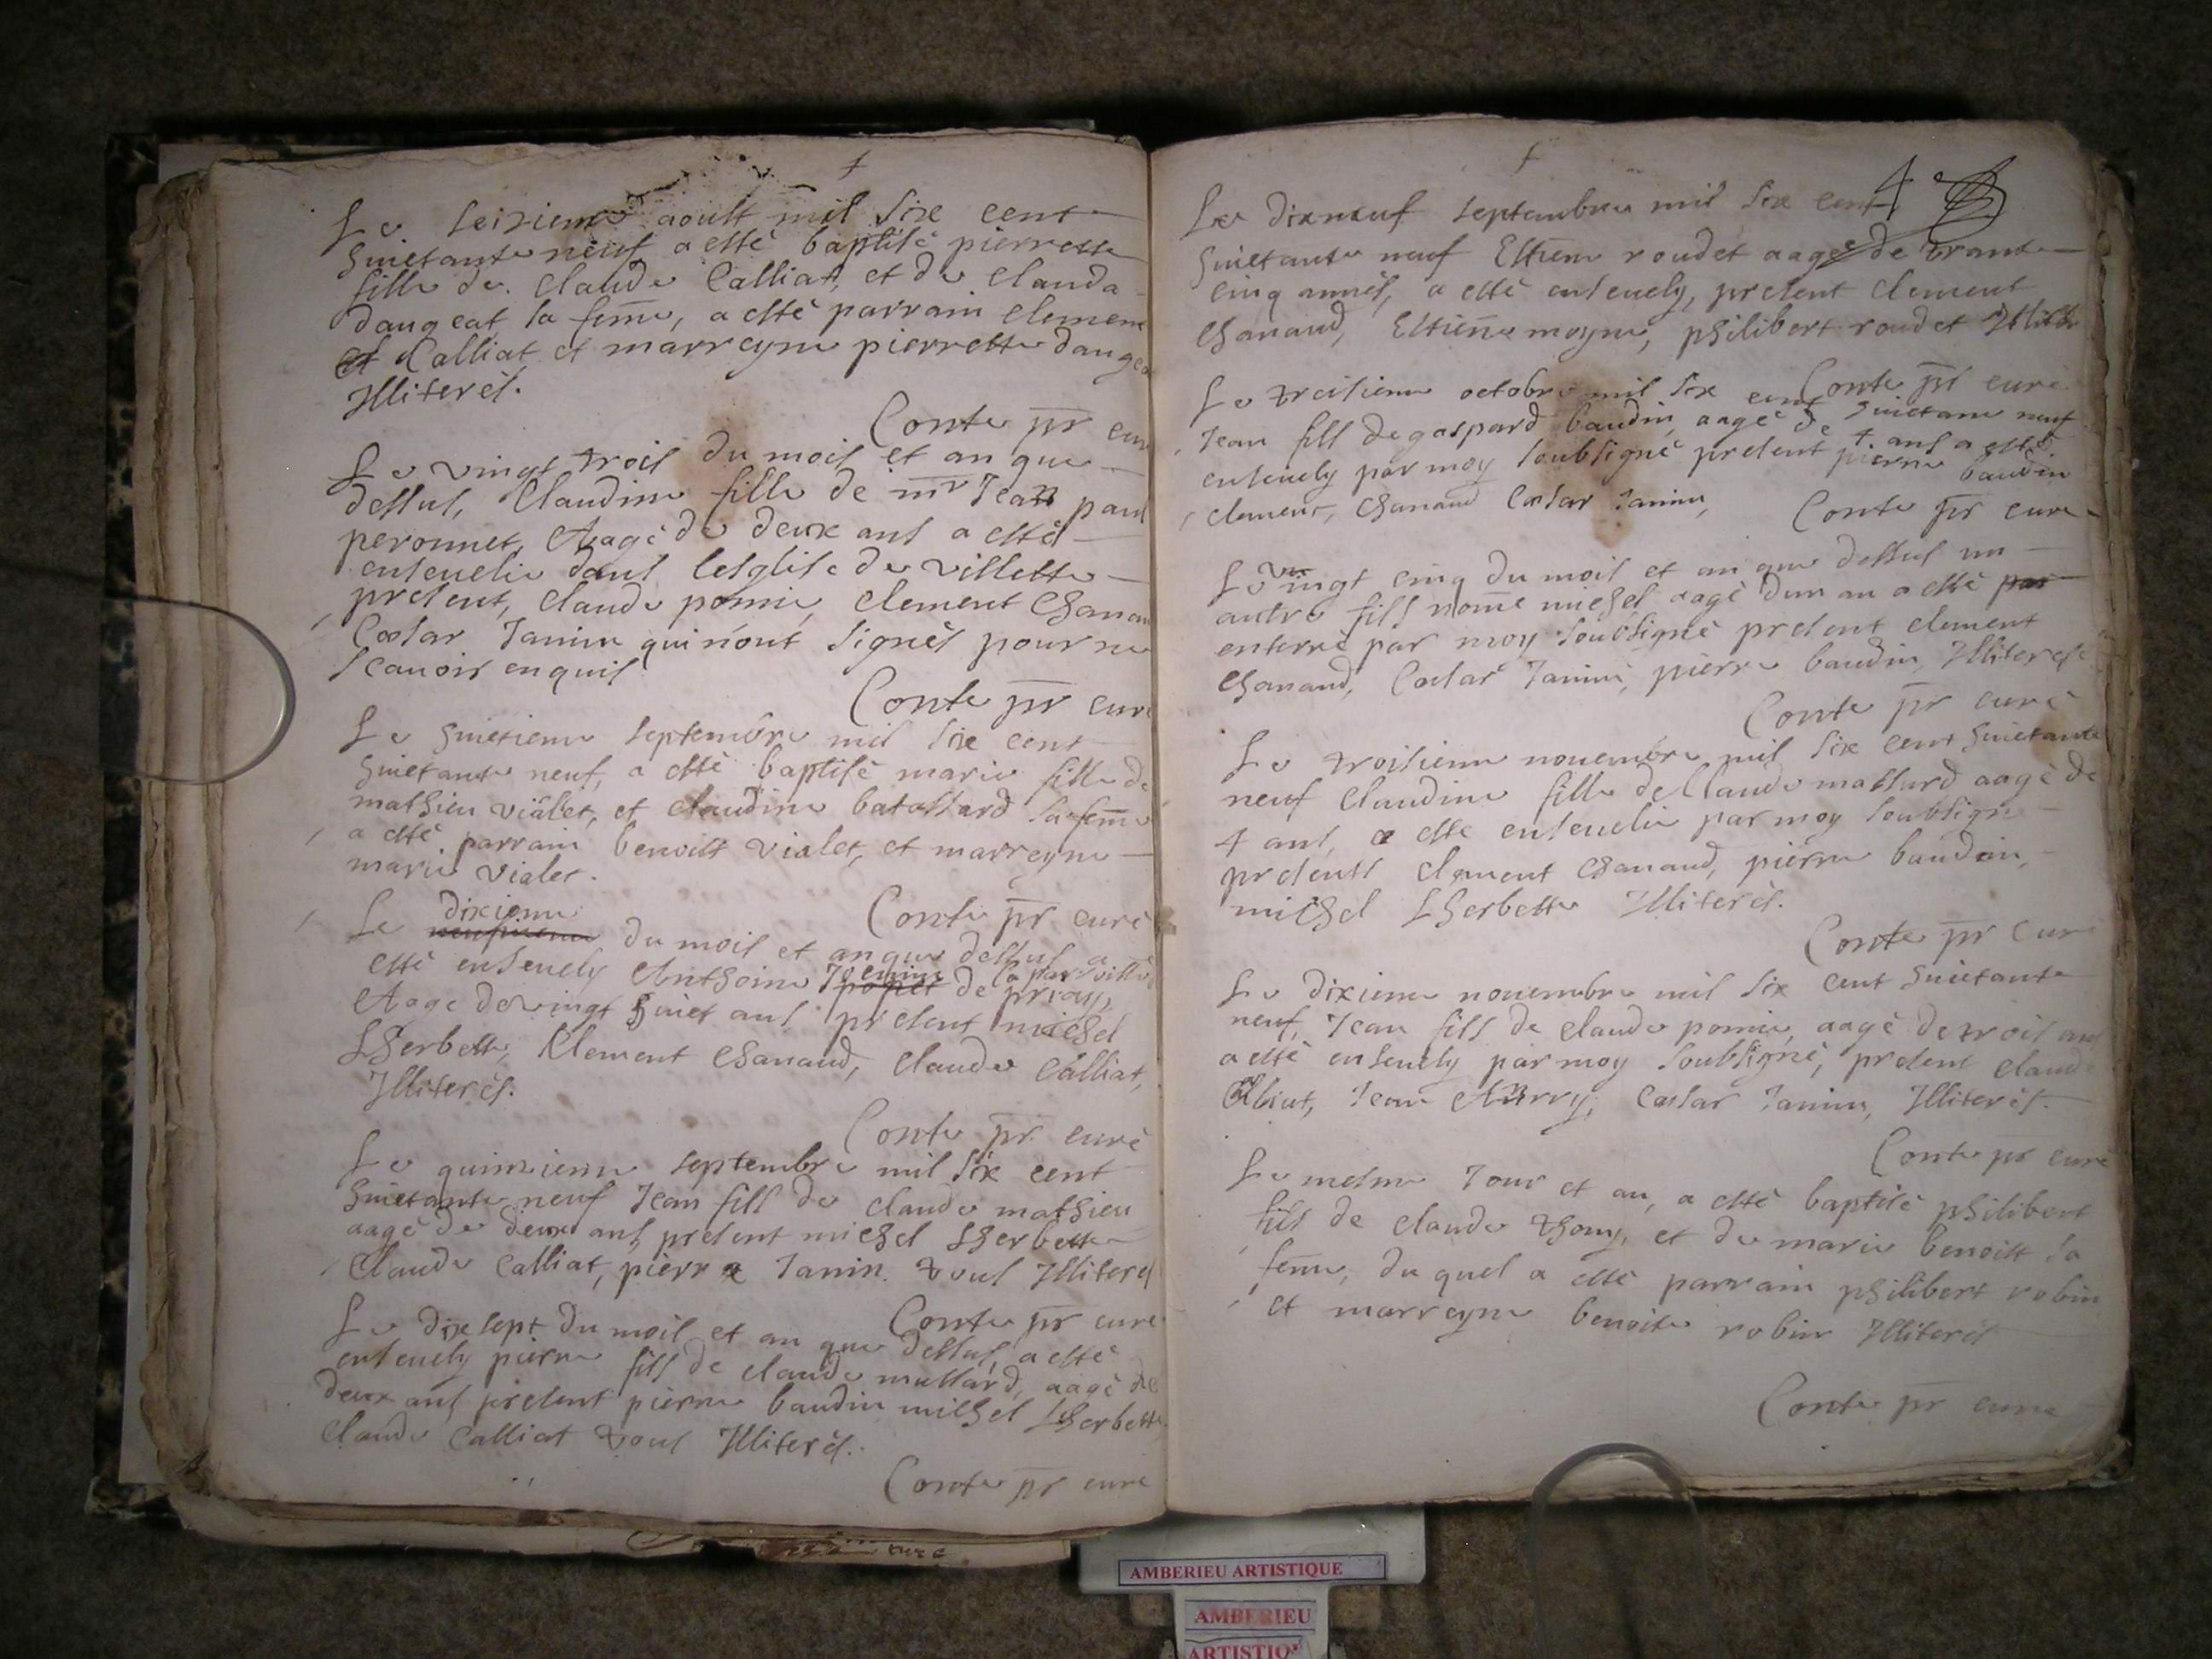 Le seizieme aoult mil six cent
huictante neuf a esté baptisé pierrette
fille de claude Calliat, et de clauda
daugeat sa fem̄e, a esté parrain clement
Calliat et marreyne pierrette dauge
Illiterés.
Conte pr̄ cur
Le vingt trois du mois et an que
dessus, Claudine fille de mr Jean paul
peronnet, Aagé de deux ans a esté
ensevelie dans lesglise de villette
present, claude pomie, clement Chanau
Cæsar Janin qui n'ont signés pour ne
scavoir enquis
Conte pr̄ curé
Le huictieme septembre mil six cent
huictante neuf, a esté baptisé marie fille de
mathieu vialet, et claudine batallard sa fem̄e
a esté parrain benoist vialet, et marreyne
marie vialet.
Conte pr̄ curé
dixieme
Le neufvieme du mois et an que dessus a
esté ensevely Anthoine popet de la parroisse
Aage de vingt huict ans present michel priay,
Lherbette, Klement Chanaud, Claude Calliat,
Illiterés.
Conte pr̄ curé
Le quinzieme septembre mil six cent
huictante neuf Jean fils de claude mathieu
aagé de deux ans present michel Lherbette
Claude Calliat, pierre Janin. tous Illiterés
Conte pr̄ curé
Le dixsept du mois et an que dessus, a esté
ensevely pierre fils de claude mallard, aagé de
deux ans present pierre baudin michel Lherbette
Claude Calliat tous Illiterés.
Conte pr̄ curé
4
Le dixneuf septembre mil six cent
huictante neuf Estiene roudet aagé de trante
cinq années, a esté ensevely, present clement
Chanaud, Estiēne moyne, philibert roudet Illite
Conte pr̄ curé
Le treisieme octobre mil six cent huictante neuf
Jean fils de gaspard baudin, aagé de 4. ans a esté
ensevely par moy soubsigné present pierre baudin
clement, Chanaud Cæsar Janin,
Conte pr̄ curé
Le vingt cinq du mois et an que dessus un
autre fils nom̄e michel aagé dun an a esté par
enterré par moy soubsigné present clement
Chanaud, Cæsar Janin, pierre baudin, Illiterés
Conte pr̄ curé
Le troisieme novembre mil six cent huictante
neuf Claudine fille de Claude mallard aagé de
4 ans, a esté ensevelie par moy soubsigne
presents clement Chanaud, pierre baudin,
michel Lherbette Illiterés.
Conte pr̄ cure
Le dixieme novembre mil six cent huictante
neuf, Jean fils de claude pomie, aagé de trois ans
a esté ensevely par moy soubsigné, present claude
Calliat, Jean Cæsar Janin, Illiterés.
Conte pr̄ curé
Le mesme Jour et an, a esté baptisé philibert
fils de claude thomy, et de marie benoist sa
fem̄e, du quel a esté parrain philibert robin
et marreyne benoite robin Illiterés
Conte pr̄ cure
AMBERIEU ARTISTIQUE
AMBERIEU
ARTISTIQ